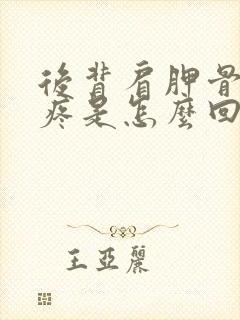 後背肩胛骨
疼是怎麼回
王亞麗